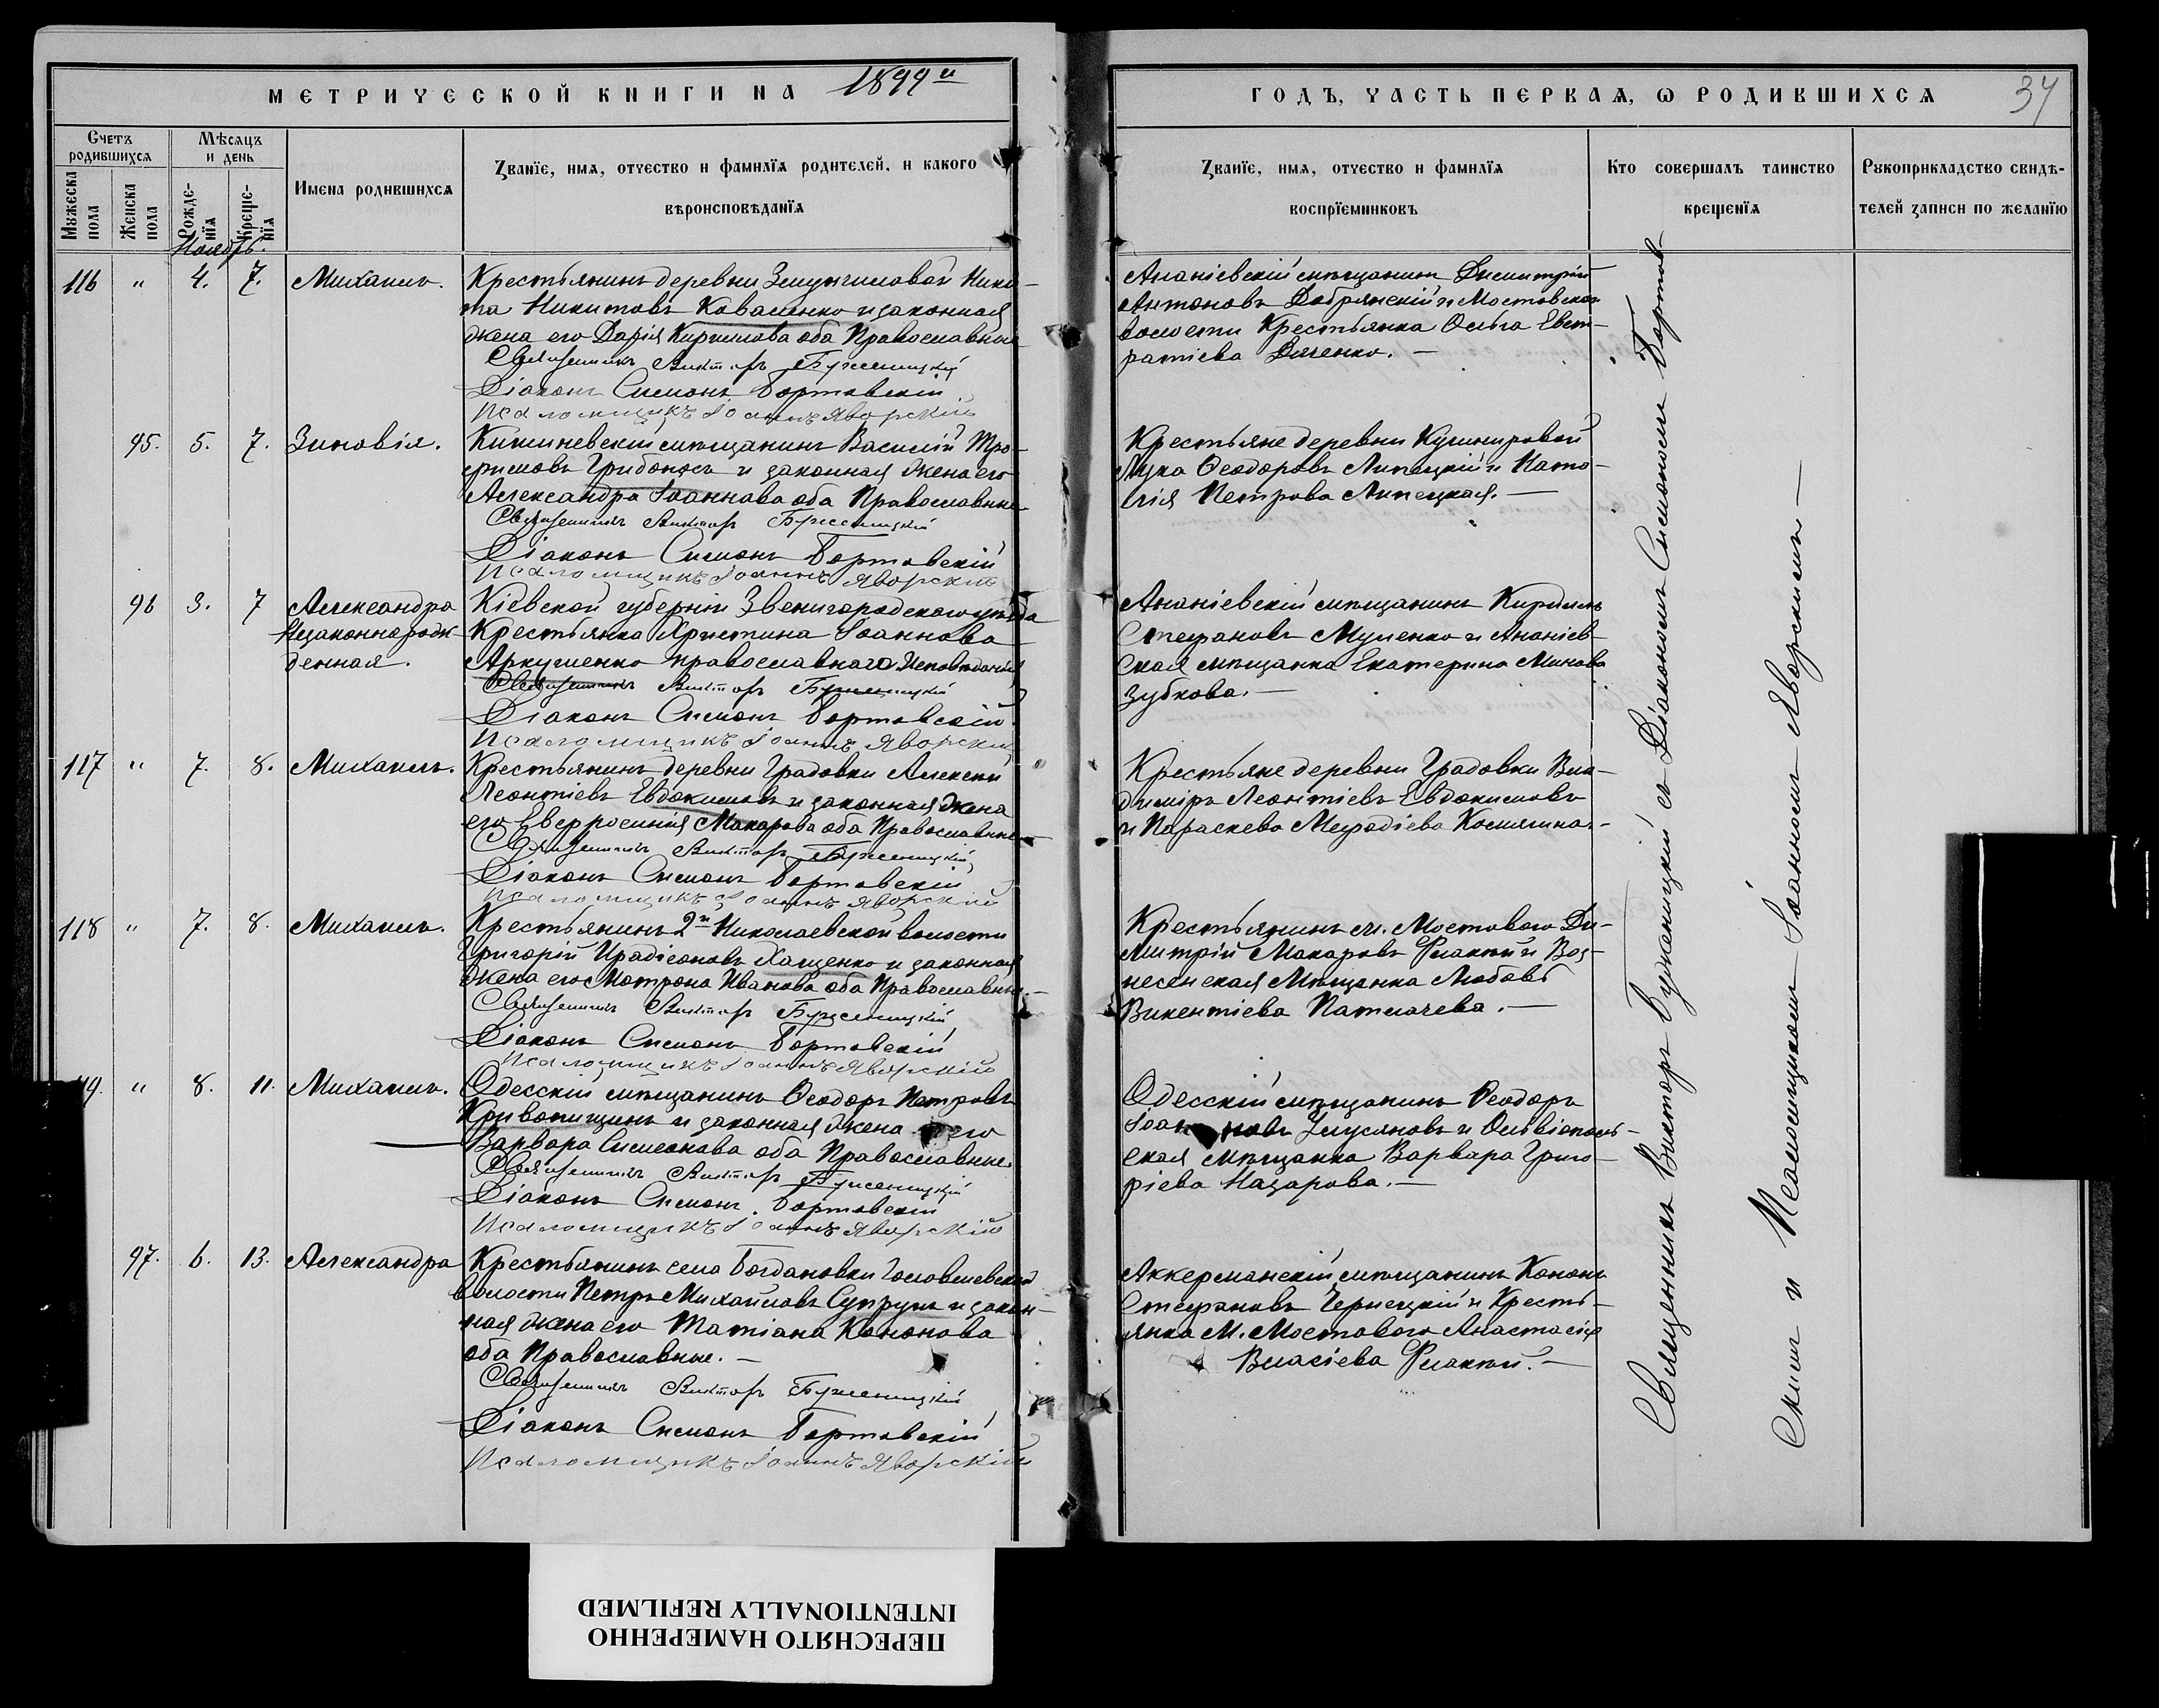 МЕТРИЧЕСКОЙ КНИГИ НА 1899 й
ГОДЪ, ЧАСТЬ ПЕРВАЯ, Ѡ РОДИВШИХСЯ
34
Счетъ родившихся
Мѣсяцъ и день
Мужеска пола
Женска пола
Рождения
Крещения
Имена родившихся
Званїе, имя, отчество и фамилїя родителей, и какого
вѣроисповѣданїя
Званїе, имя, отчество и фамилїя
воспрїемниковъ
Кто совершалъ таинство
крещенїя
Рукоприкладство свидѣ-
телей записи по желанїю
Ноябрь.
116 " 4. 7. Михаилъ.
Крестьянинъ деревни Ники-
та Никитовъ Коваленко и законная
жена его Дарія Кириллова оба Православные
Священникъ Викторъ Буженицкій
Діаконъ Симонъ Бортовскій
Псаломщикъ Іоаннъ Яворскій
Ананіевскій мѣщанинъ Димитрій
Антоновъ Добрянскій и Мостовской
волости Крестьянка Ольга Евст-
ратіева Дяченко. —
95. 5. 7. Зиновія.
Кишиневскій мѣщанинъ Василій Тро-
фимовъ Грибоносъ и законная жена его
Александра Іоаннова оба Православные
Священникъ Викторъ Буженицкій
Діаконъ Симонъ Бортовскій
Псаломщикъ Іоаннъ Яворскій
Крестьяне деревни Кушнировой
Лука Ѳеодоровъ Липецкій и Ната-
лія Петрова Липецкая. —
96 3. 7 Александра
Незаконнорож-
денная.
Кіевской губерніи Звенигородскаго уѣзда
Крестьянка Христина Іоаннова
Аркушенко православнаго исповѣданія
Священникъ Викторъ Буженицкій
Діаконъ Симонъ Бортовскій
Псаломщикъ Іоаннъ Яворскій
Ананіевскій мѣщанинъ Кириллъ
Стефановъ Муленко и Ананіев-
ская мѣщанка Екатерина Минова
Зубкова. —
117 " 7. 8. Михаилъ.
Крестьянинъ деревни Градовки Алексѣй
Леонтіевъ Евдокимовъ и законная жена
его Евфросинія Макарова оба Православные
Священникъ Викторъ Буженицкій
Діаконъ Симонъ Бортовскій
Псаломщикъ Іоаннъ Яворскій
Крестьяне деревни Градовки Вла-
диміръ Леонтіевъ Евдокимовъ
и Параскева Меѳодіева
118 " 7. 8. Михаилъ.
Крестьянинъ 2й Николаевской волости
Григорій Иродіоновъ Хащенко и законная
жена его Мотрона Иванова оба Православные. —
Священникъ Викторъ Буженицкій
Діаконъ Симонъ Бортовскій
Псаломщикъ Іоаннъ Яворскій
Крестьянинъ м. Мостового Ди-
митрій Макаровъ и Воз-
несенская Мѣщанка Любовь
Викентіева Патлачева. —
" 8. 11. Михаилъ.
Одесскій мѣщанинъ Ѳеодоръ Петровъ
Кривопишинъ и законная жена его
Варвара Симеонова оба Православные.
Священникъ Викторъ Буженицкій
Діаконъ Симонъ Бортовскій
Псаломщикъ Іоаннъ Яворскій
Одесскій мѣщанинъ Ѳеодоръ
и Ольвіополь-
ская мѣщанка Варвара Григо-
ріева Назарова. —
97. 6. 13. Александра
Крестьянинъ села Богдановки
волости Петръ Михайловъ Супрунъ и закон-
ная жена его Татіана Кононова
оба Православные. —
Священникъ Викторъ Буженицкій
Діаконъ Симонъ Бортовскій
Псаломщикъ Іоаннъ Яворскій
Аккерманскій мѣщанинъ Кононъ
Стефановъ Чернецкій и Кресть-
янка м. Мостового Анастасія
Власіева
Священникъ Викторъ Буженицкій съ Діакономъ Симономъ Бортов-
скимъ и Псаломщикомъ Іоанномъ Яворскимъ —
ПЕРЕСНЯТО НАМЕРЕННО
INTENTIONALLY REFILMED